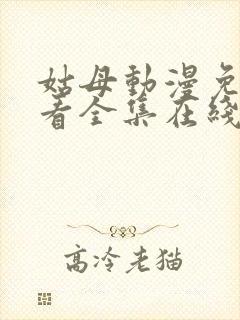 姑母動漫免
看全集在綫
高冷老猫